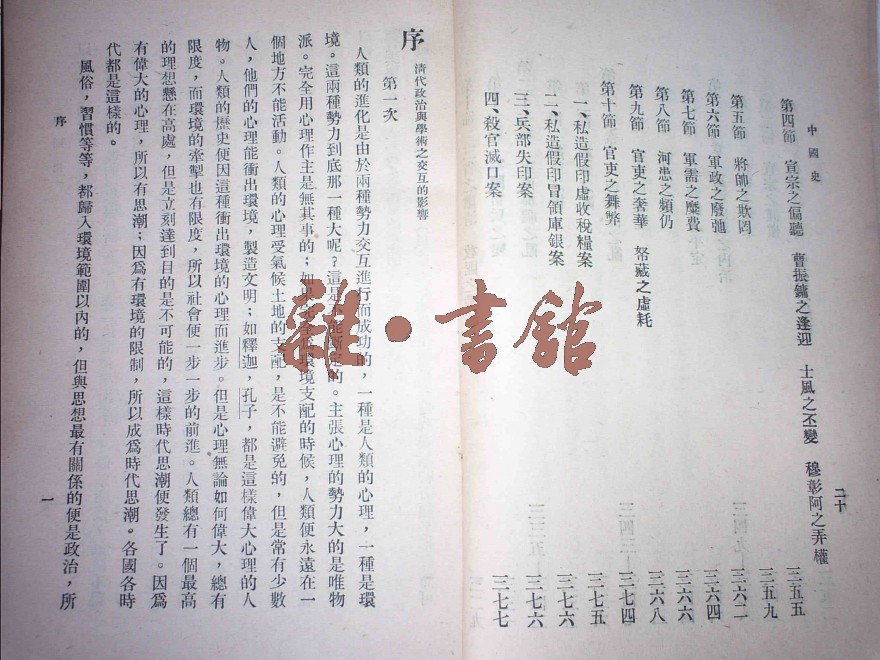 中國史
二十
第四節　宣宗之偏聽　曹振鏞之逢迎　士風之丕變　穆彰阿之弄權
三五五
第五節　將帥之欺罔
三五九
第六節　軍政之廢弛
三六二
第七節　軍需之糜費
三六四
第八節　河患之頻仍
三六六
第九節　官吏之奢華　帑藏之虛耗
三六八
第十節　官吏之舞弊
三七四
一、私造假印虛收稅糧案
三七五
二、私造假印冒領庫銀案
三七六
三、兵部失印案
三七六
四、殺官滅口案
三七七
序　清代政治與學術之交互的影響
第一次
人類的進化是由於兩種勢力交互進行而成功的，一種是人類的心理，一種是環
境。這兩種勢力到底那一種大呢？這是的。主張心理的勢力大的是唯物
派。完全用心理作主是無其事的；如環境支配的時候，人類便永遠在一
個地方不能活動。人類的心理受氣候土地的支配，是不能避免的，但是常有少數
人，他們的心理能衝出環境，製造文明；如釋迦，孔子，都是這樣偉大心理的人
物。人類的歷史便因這種衝出環境的心理而進步。但是心理無論如何偉大，總有
限度，而環境的牽掣也有限度，所以社會便一步一步的前進。人類總有一個最高
的理想懸在高處，但是立刻達到目的是不可能的，這樣時代思潮便發生了。因爲
有偉大的心理，所以有思潮；因爲有環境的限制，所以成爲時代思潮。各國各時
代都是這樣的。
風俗，習慣等等，都歸入環境範圍以內的，但與思想最有關係的便是政治，所
序
一
雜・書館